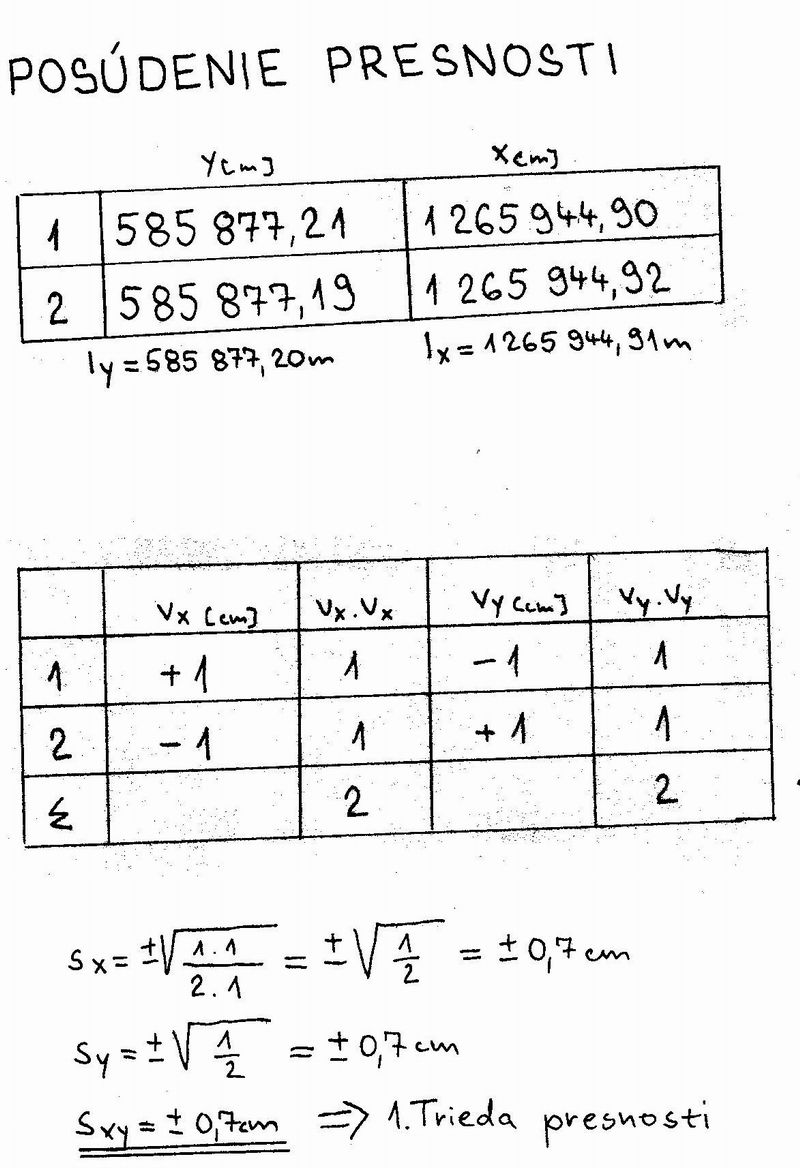 POSÚDENIE PRESNOSTI
Y[m] X[m]
1 585 877,21 1 265 944,90
2 585 877,19 1 265 944,92
ly = 585 877,20m lx = 1265 944,91m
Vx [cm] Vx.Vx Vy [cm] Vy.Vy
1 +1 1 -1 1
2 -1 1 +1 1
Σ 2 2
Sx = ±√(1.1/2.1) = ±√(1/2) = ±0,7cm
Sy = ±√(1/2) = ±0,7cm
Sxy = ±0,7cm => 1.Trieda presnosti